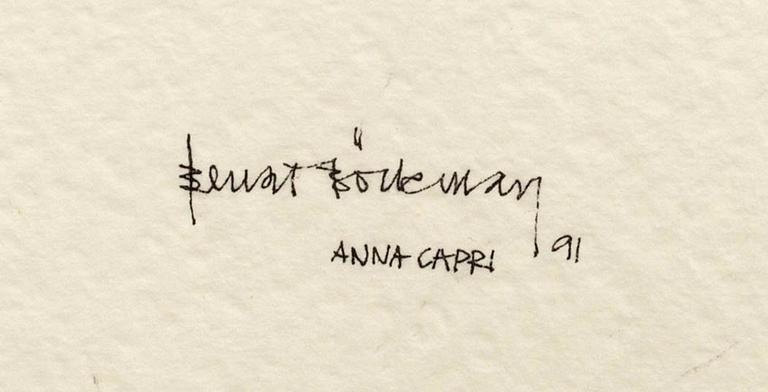 Bengt Böckman
ANNA CAPRI 91